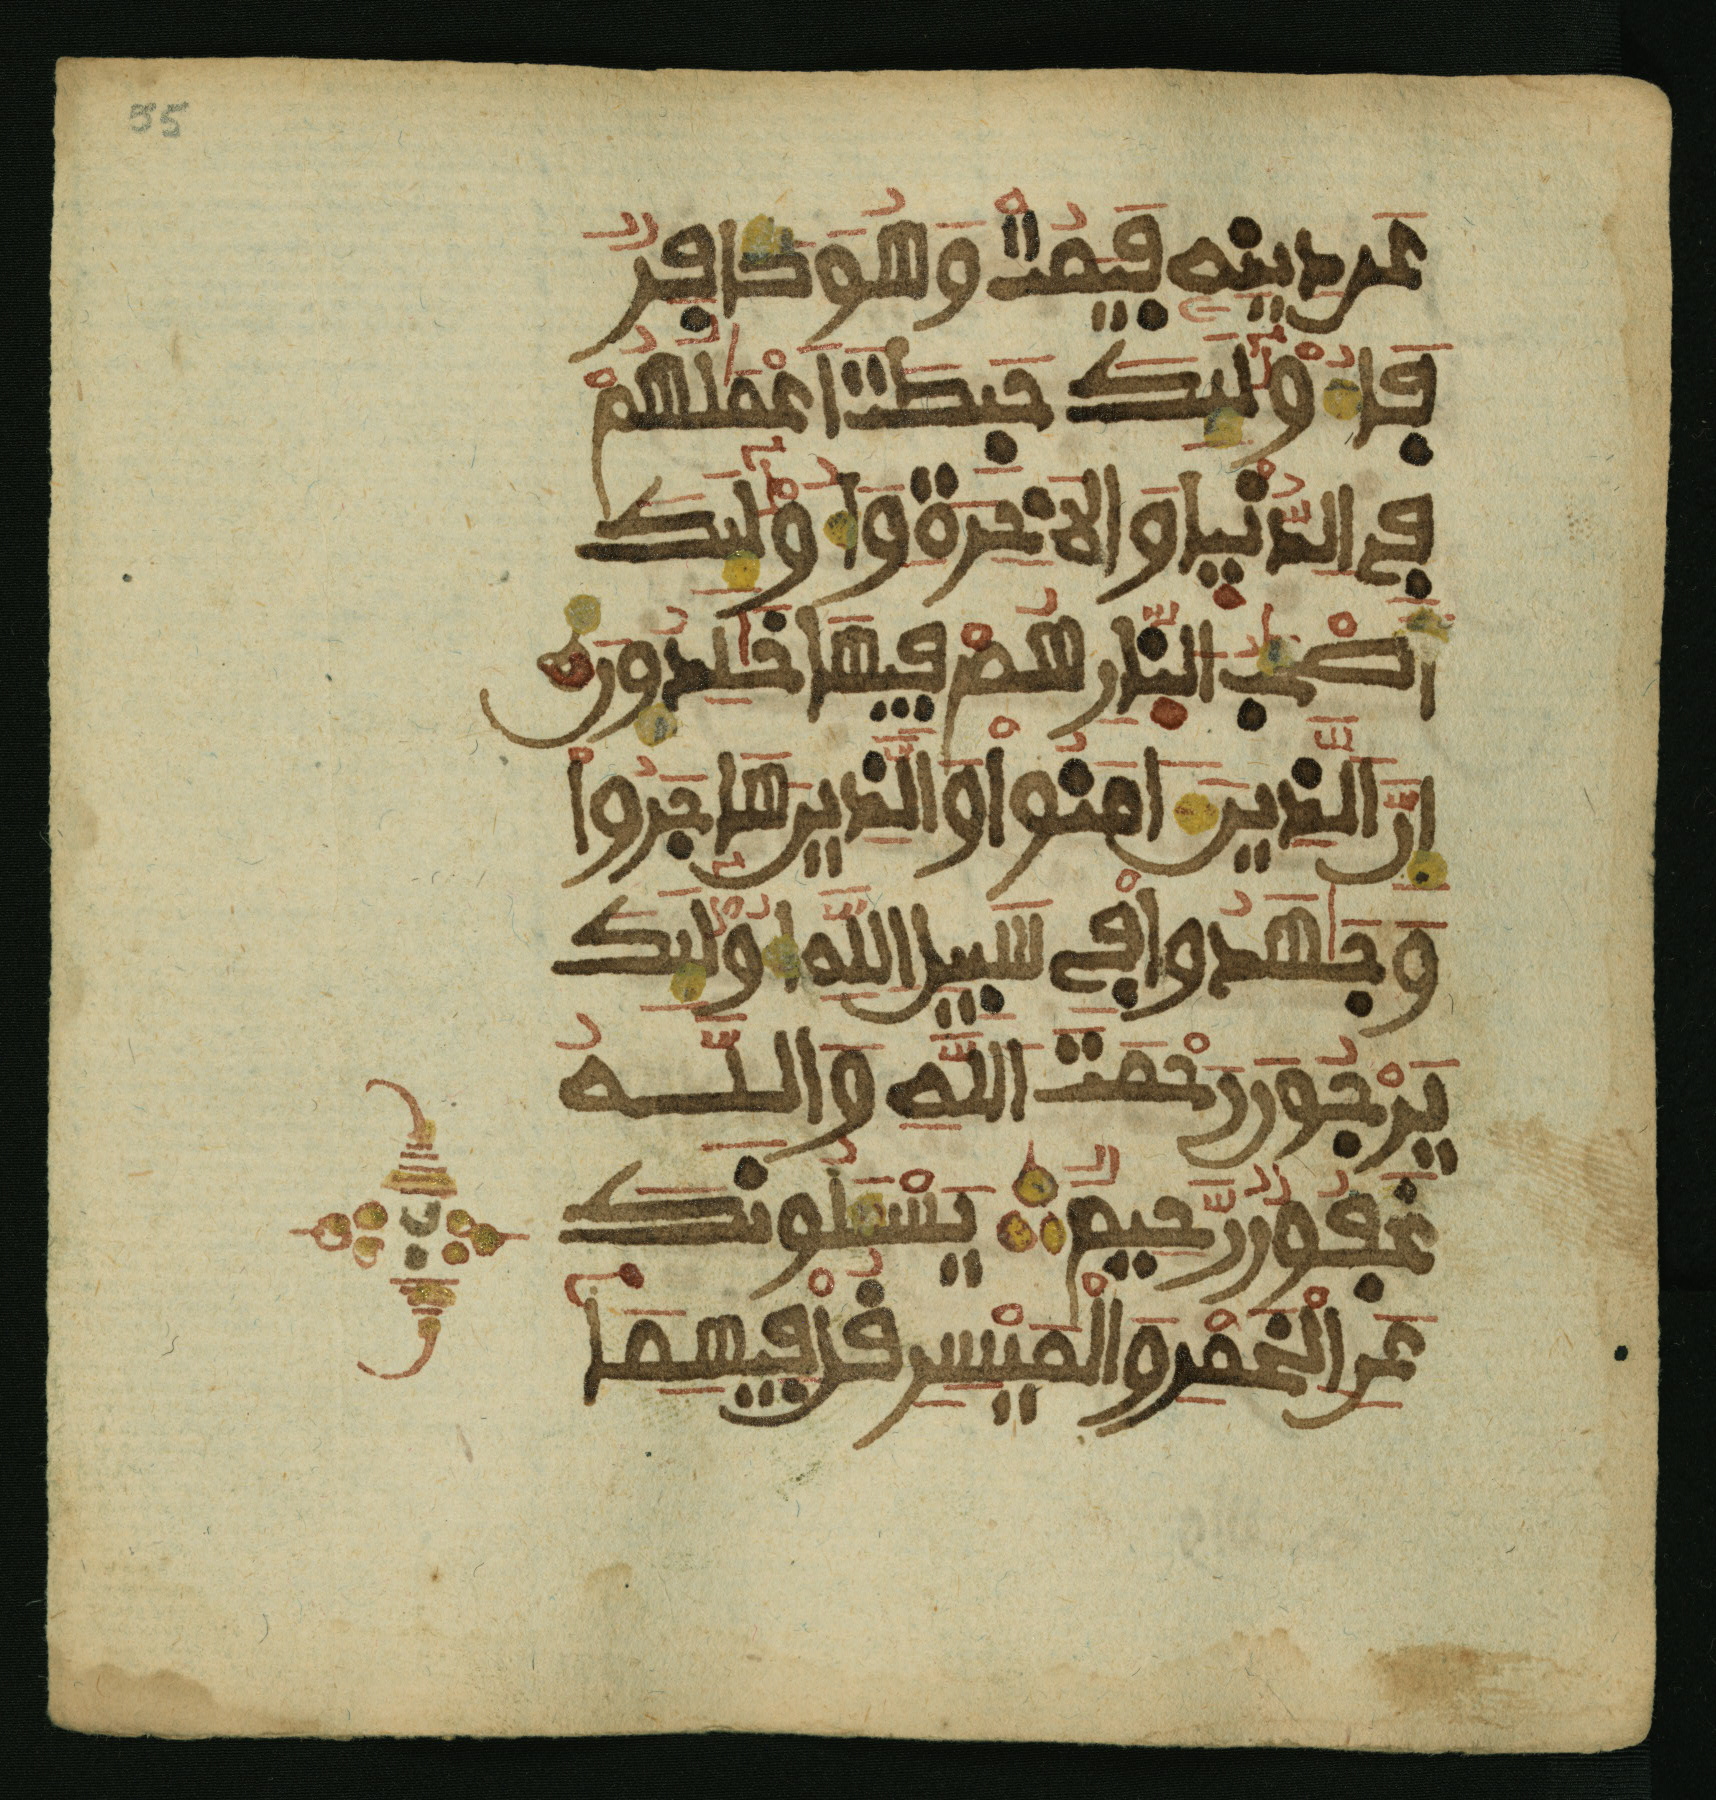 55
عَن دِينِهِ فَيَمُتْ وَهُوَ كَافِرٌ
فَأُوْلَٰئِكَ حَبِطَتْ أَعْمَٰلُهُمْ
فِي الدُّنْيَا وَالَاخِرَةِ وَأُوْلَٰئِكَ
أَصْحَٰبُ النَّارِ هُمْ فِيهَا خَٰلِدُونَ
إِنَّ الَّذِينَ ءَامَنُواْ وَالَّذِينَ هَاجَرُواْ
وَجَٰهَدُواْ فِي سَبِيلِ اللَّهِ أُوْلَٰئِكَ
يَرْجُونَ رَحْمَتَ اللَّهِ وَاللَّهُ
غَفُورٌ رَّحِيمٌ يَسْـَٔلُونَكَ
عَنِ الْخَمْرِ وَالْمَيْسِرِ قُلْ فِيهِمَا